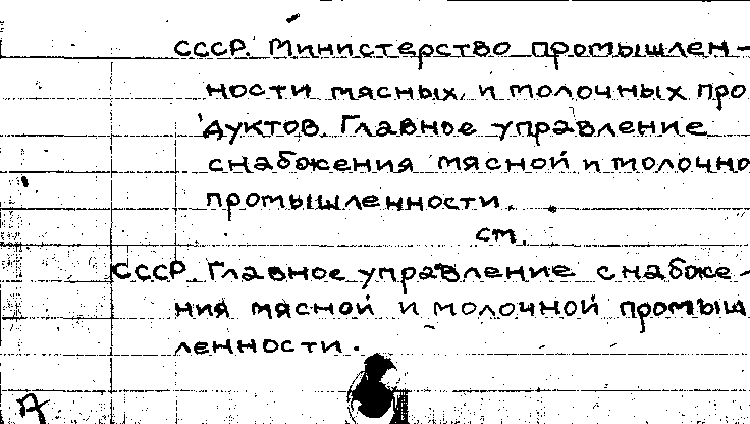 СССР. Министерство промышлен-
ности мясных и молочных про
дуктов. Главное управление
снабжения мясной и молочно
промышленности.
см.
СССР. Главное управление снабже-
ния мясной и молочной промыш
ленности.